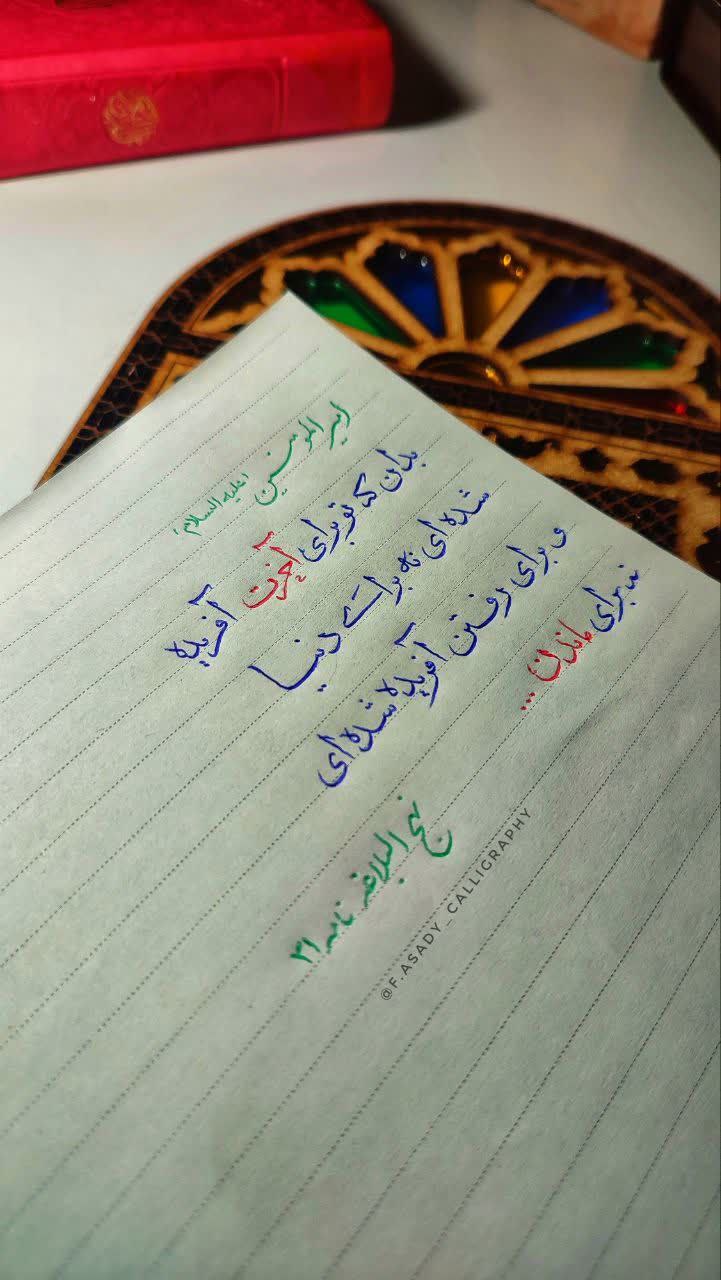 امیرالمومنین (علیه السلام)
بدان که تو برای آخرت آفریده
شده‌ای نه برای دنیا
و برای رفتن آفریده شده‌ای
نه برای ماندن ...
نهج البلاغه نامه ۳۱
@F.ASADY_CALLIGRAPHY